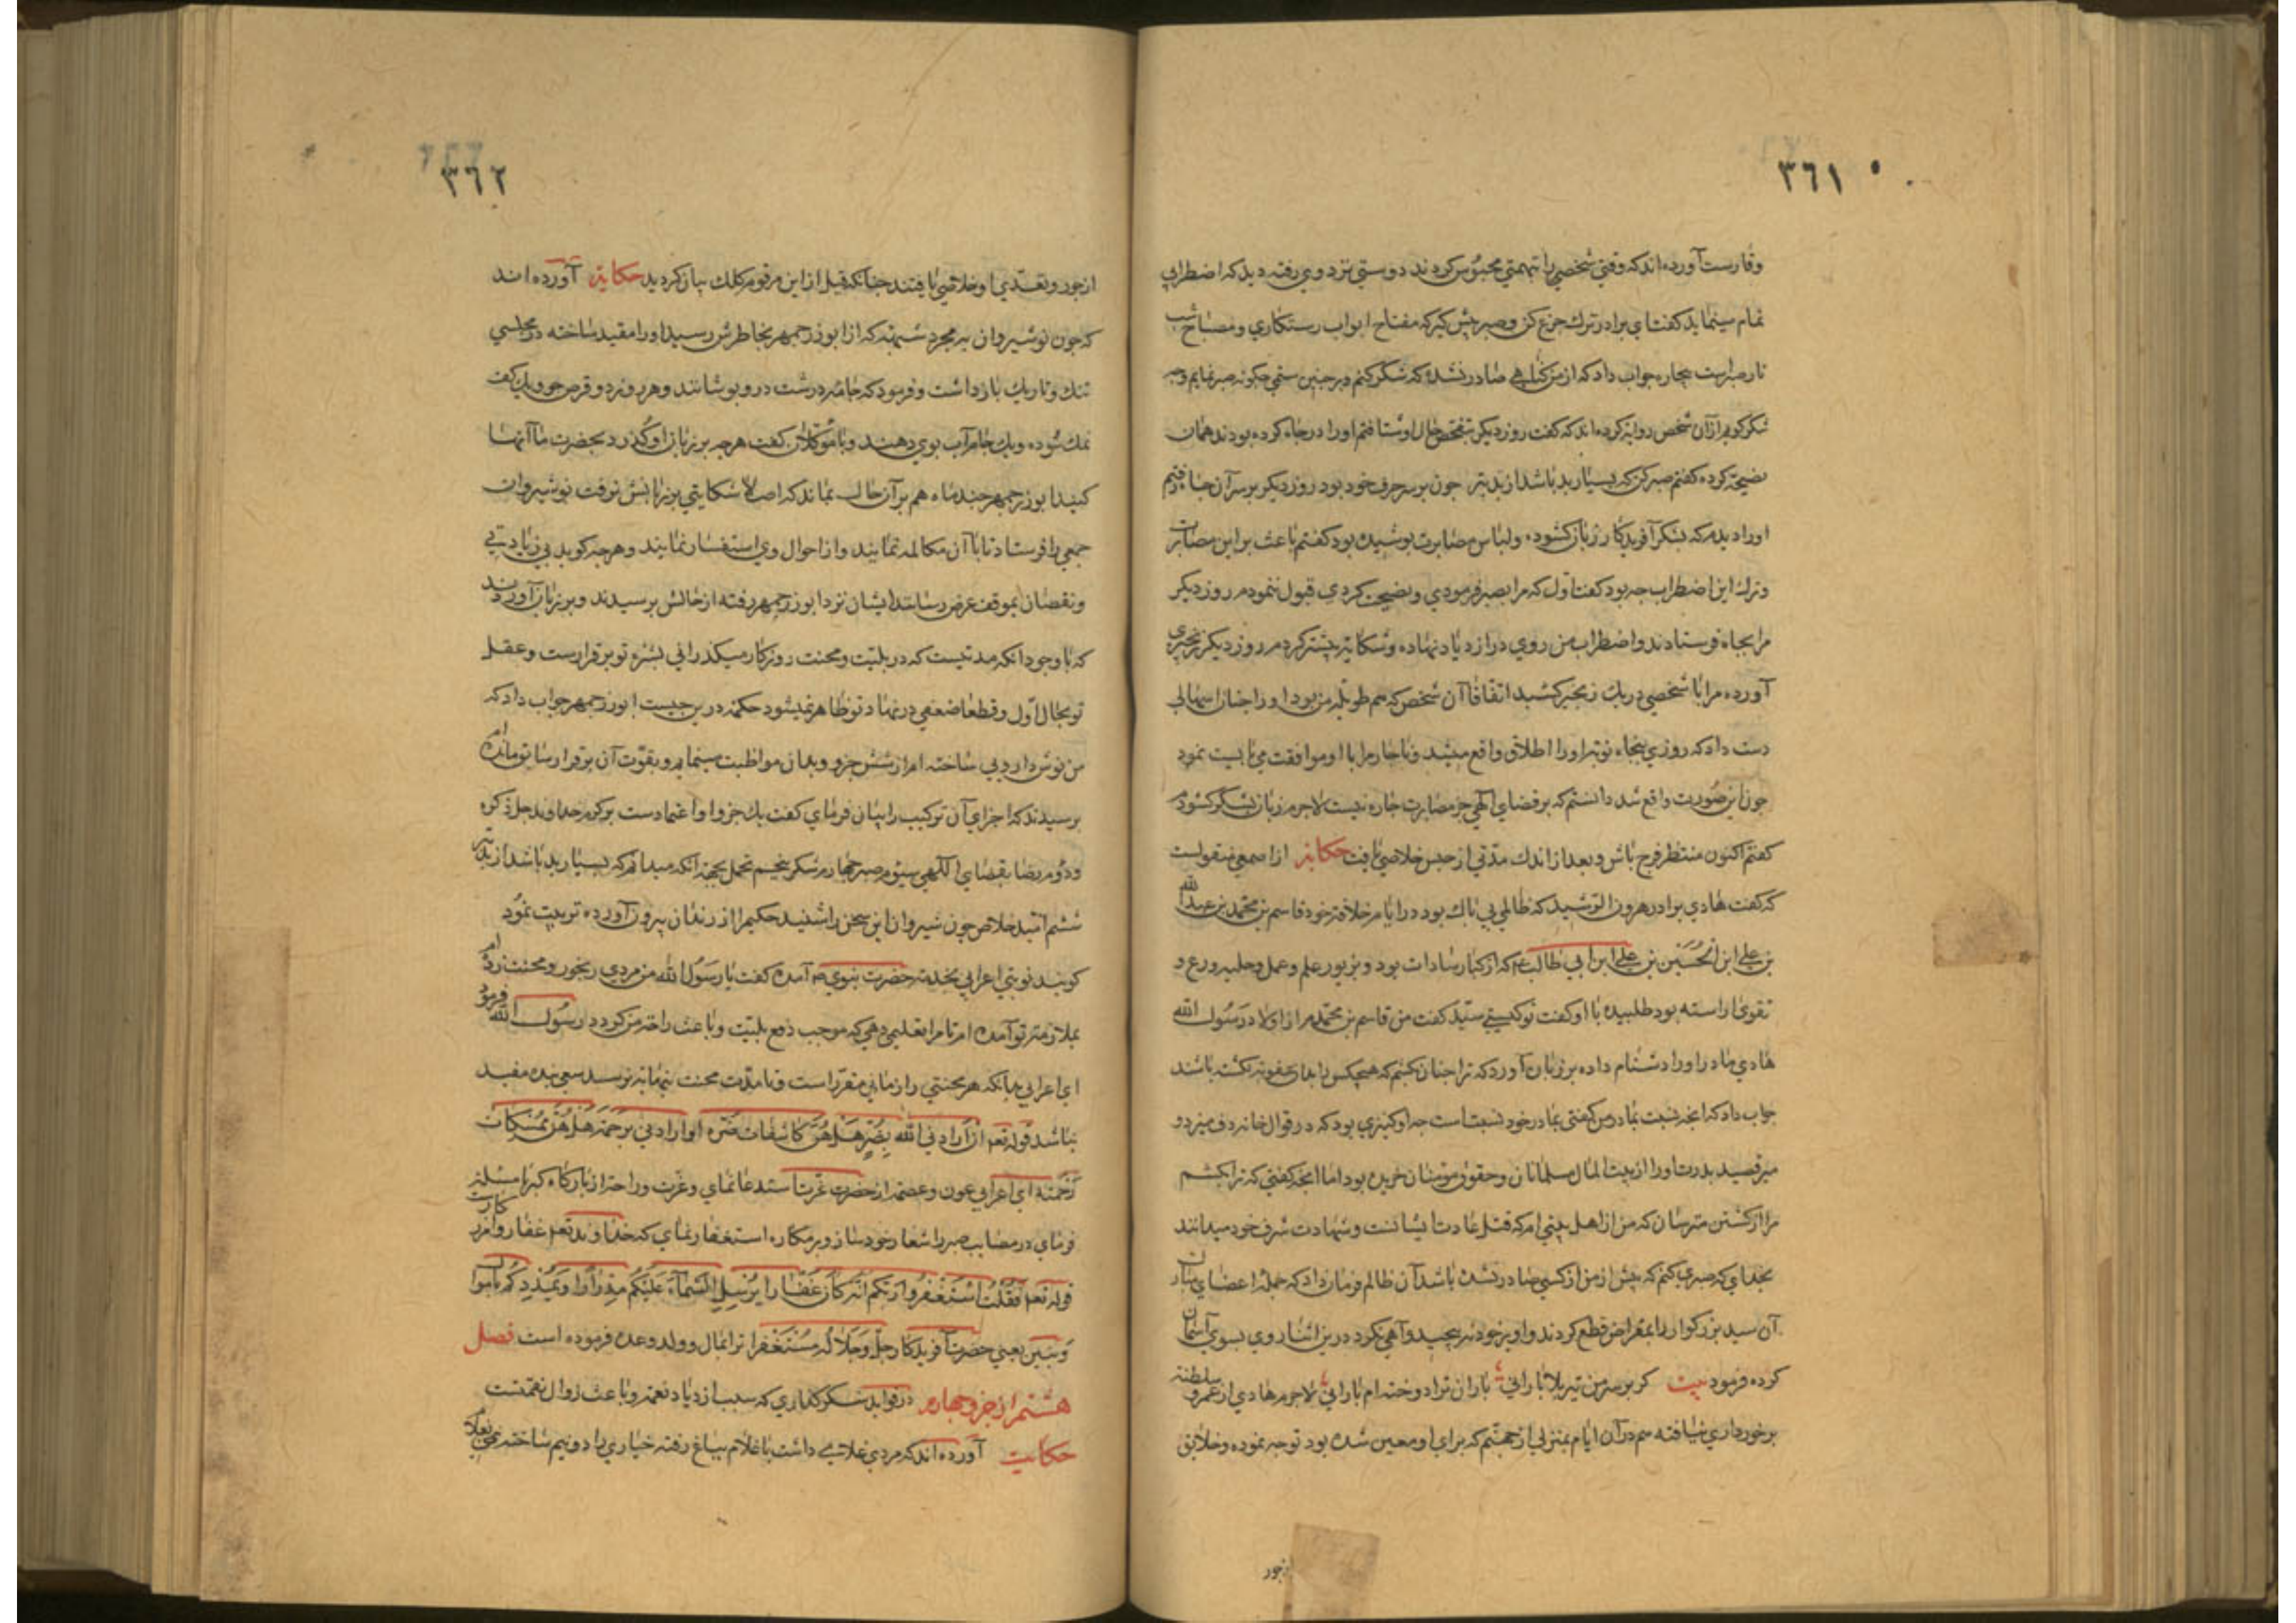 ٣٦١
وقارست آورده‌اند که وقتی شخصی را بتهمتی محبوس کردند دوستی نزد وی رفته دید که اضطرابی
تمام مینماید کفت ای برادر ترك جزع کن وصبر پیش کیر که مفتاح ابواب رستکاری ومصباح شب
تار صبرست بیچاره جواب داد که از من کناهی صادر نشده که شکر کنم در چنین ستمی چکونه صبر نمایم
شکر کویم از آن شخص روایة کرده‌اند که کفت روز دیکر بتفحص حال او شتافتم او را در چاه کرده بودند همان
نصیحة کرده کفتم صبر کن که بسیار بد باشد از بد بتر چون بر سر حرف خود بود روز دیکر بر سر آن چاه رفتم
او را دیدم که بشکر آفریدکار زبان کشوده ولباس مصابرت پوشیده بود کفتم باعث بر این مصابرت
وترك این اضطراب چه بود کفت اول که مرا بصبر فرمودی ونصیحت کردی قبول ننمودم روز دیکر
مرا بچاه فرستادند واضطراب من روی در ازدیاد نهاده وشکایة بیشتر کردم روز دیکر زنجیری
آورده مرا با شخصی در یك زنجیر کشید اتفاقا آن شخص که هم طویله من بود او را چنان اسهالی
دست داد که روزی پنجاه نوبة او را اطلاق واقع میشد وناچار مرا با او موافقت می‌بایست نمود
چون این صورت واقع شد دانستم که بر قضای الهی جز مصابرت چاره نیست لاجرم زبان بشکر کشودم
کفتم اکنون منتظر فرج باش وبعد از اندك مدتی از حبس خلاصی یافت حکایة از اصمعی منقولست
که کفت هادی برادر هرون الرشید که ظالمی بی باك بود در ایام خلافة خود قاسم بن محمد بن عبد الله
بن علی ابن الحسین بن علی ابن ابی طالب ع که از کبار سادات بود وبزیور علم وعمل وحلیه ورع و
تقوی اراسته بود طلبیده با او کفت تو کیستی سید کفت من قاسم بن محمدم از اولاد رسول الله
هادی مادر او را دشنام داده بر زبان آورد که ترا چنان بکشم که هیچکس را بدان عقوبة نکشته باشند
جواب داد که انچه نسبت بمادر من کفتی بمادر خود نسبت است چه او کنیزی بود که در قوال خانه دف میزد و
میرقصید پدرت او را از بیت المال مسلمانان وحقوق مؤمنان خریده بود اما انچه کفتی که ترا بکشم
مرا از کشتن مترسان که من از اهل بیتی‌ام که قتل عادت ایشانست وشهادت شرف خود میدانند
بخدای که صبری کنم که پیش از من از کسی صادر نشده باشد آن ظالم فرمان داد که جمله اعضای
آن سید بزرکوار را بمقراض قطع کردند واو بر خود نپیچید وآهی نکرد در ین اثنا روی بسوی آسمان
کرده فرمود بیت کر بر سر من تیر بلا بارانی باران ترا دوخته‌ام بارانی لاجرم هادی از عمر و سلطنة
برخورداری نیافته هم در آن ایام بمنزلی از جهنم که برای او معین شده بود توجه نموده وخلایق
زجور
٣٦٢
از جور وتعدی او خلاصی یافتند چنانکه قبل از این مرقوم کلك بیان کردید حکایة آورده‌اند
که چون نوشیروان به مجرد شبهة که از ابوزرجمهر بخاطرش رسید او را مقید ساخته در مجلسی
تنك وتاریك باز داشت وفرمود که جامه درشت در و پوشانند وهر روز دو قرص جو ویك کف
نمك سوده ویك جام آب بوی دهند وبا موکلان کفت هرچه بر زبان او کذرد بحضرت ما آنها
کنید ابوزرجمهر چند ماه هم بر آن حال بماند که اصلا شکایتی بر زبانش نرفت نوشیروان
جمعی را فرستاد تا با آن مکالمه نمایند واز احوال وی استفسار نمایند وهرچه کوید بی زیادتی
ونقصان بموقف عرض رسانند ایشان نزد ابوزرجمهر رفته از حالش پرسیدند وبر زبان آوردند
که با وجود انکه مدتیست که در بلیت ومحنت روزکار میکذرانی بشره تو برقرارست وعقل
تو بحال اول وقطعا ضعفی در نهاد تو ظاهر نمیشود حکمة درین چیست ابوزرجمهر جواب داد که
من نوش داروی ساخته‌ام از شش جزو وبدان مواظبت مینمایم وبقوت آن برقرار سابق مانده‌ام
پرسیدند که اجزای آن ترکیب را بیان فرمای کفت یك جزو او اعتمادست بر کرم خداوند جل ذکره
ودوم رضا بقضای الکهی سیوم صبر چهارم شکر پنجم تحمل بجهة انکه میدانم که بسیار بد باشد از بد بتر
ششم امید خلاص چون شیروان این سخن را شنید حکیم را از زندان بیرون آورده تربیت نمود
کویند نوبتی اعرابی بخدمة حضرت نبوی ص آمده کفت یا رسول الله من مردی رنجور ومحنت زده‌ام
بملازمة تو آمده‌ام تا مرا تعلیمی دهی که موجب دفع بلیت وباعث راحة من کردد رسول الله فرمود
ای اعرابی بدانکه هر محنتی را زمانی مقرر است وتا مدت محنت بنهایة نرسد سعی بنده مفید
نباشد قوله تعم ان اراد نی الله بضر هل هن کاشفات ضره او اراد نی برحمة هل هن ممسکات
رحمته ای اعرابی عون وعصمة از حضرت عزت استدعا نمای وعزت وراحة از بارکاه کبریا مسئلة
فرمای در مصایب صبر را شعار خود ساز وبر مکاره استغفار نمای که خداوند تعم غفار وآمرزکارست
قوله تعم فقلت استغفروا ربکم انه کان غفارا یرسل السماء علیکم مدرارا ویمددکم باموال
وبنین یعنی حضرت آفریدکار جل وجلاله مستغفرا ترا بمال وولد وعده فرموده است فصل
هشتم از جزو چهارم در فواید شکر کذاری که سبب ازدیاد نعمة وباعث زوال نقمتست
حکایت آورده‌اند که مردی غلامی داشت با غلام بباغ رفته خیاری را دو نیم ساخته نیمی بغلام